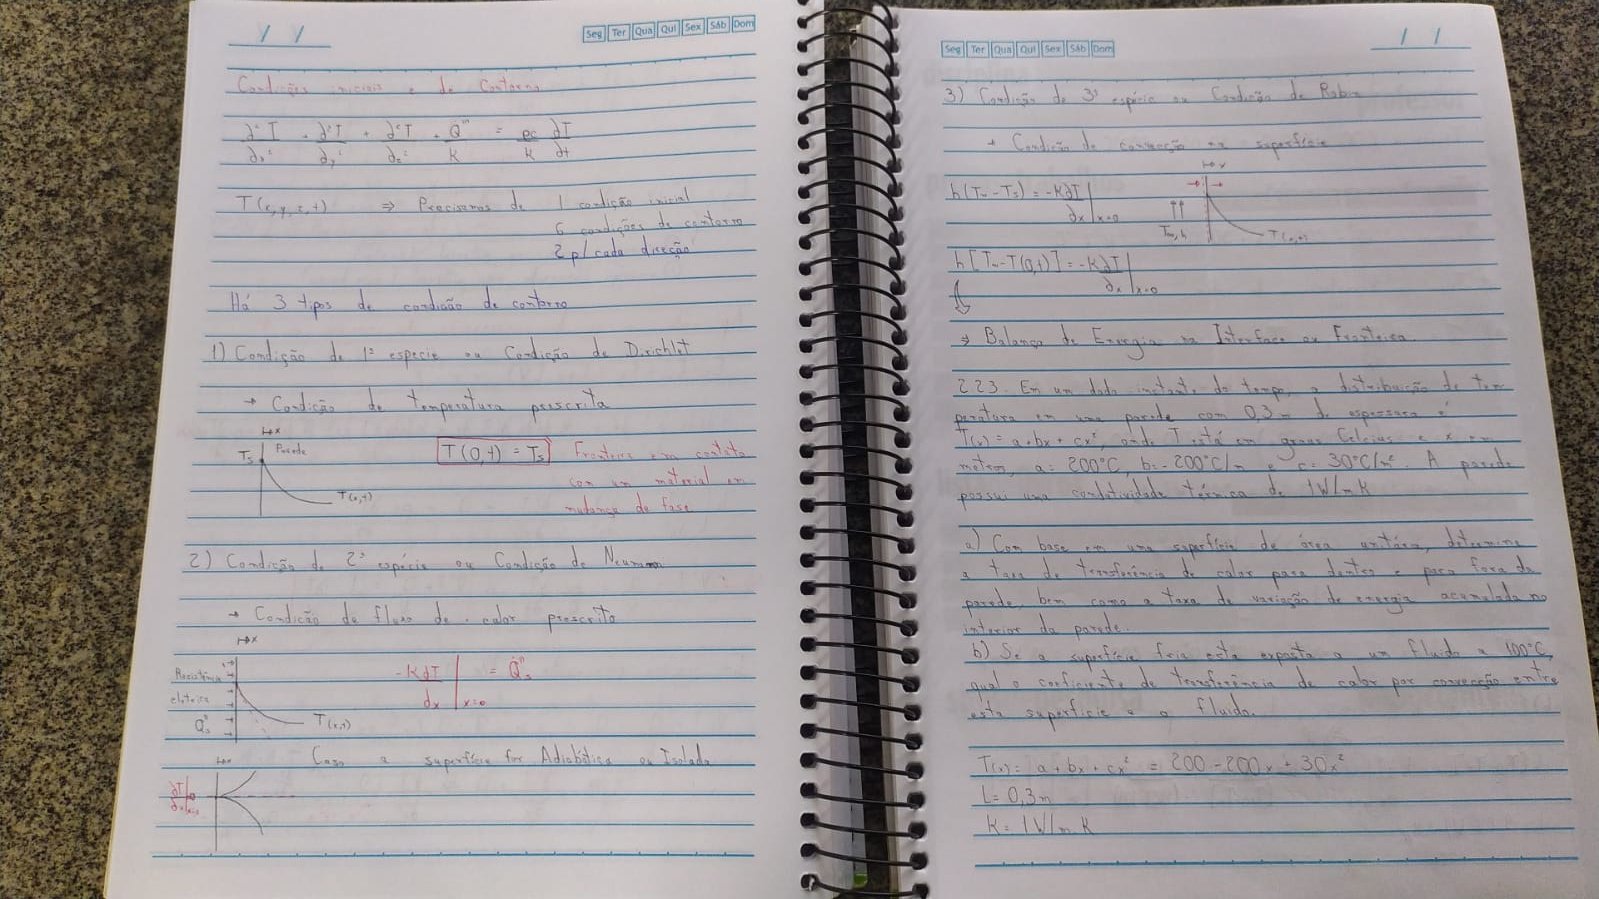 Seg Ter Qua Qui Sex Sáb Dom
/ /
Condições iniciais e de Contorno
∂²T/∂x² + ∂²T/∂y² + ∂²T/∂z² + Q'''/K = ρc/K ∂T/∂t
T(x,y,z,t) ⇒ Precisamos de 1 condição inicial
6 condições de contorno
2 p/ cada direção
Há 3 tipos de condição de contorno
1) Condição de 1ª espécie ou Condição de Dirichlet
→ Condição de temperatura prescrita
↦x
Ts Parede
T(0,t) = Ts Fronteira em contato
com um material em
mudança de fase
T(x,t)
2) Condição de 2ª espécie ou Condição de Neumann
→ Condição de fluxo de calor prescrito
↦x
Resistência
elétrica
Q''s
T(x,t)
-K∂T/∂x |x=0 = Q''s
Caso a superfície for Adiabática ou Isolada
↦x
∂T/∂x |x=0 = 0
Seg Ter Qua Qui Sex Sáb Dom
/ /
3) Condição de 3ª espécie ou Condição de Robin
→ Condição de convecção na superfície
↦x
h(T∞ - Ts) = -K∂T/∂x |x=0
T∞,h
T(x,t)
h[T∞ - T(0,t)] = -K∂T/∂x |x=0
⇒ Balanço de Energia na Interface ou Fronteira.
2.23. Em um dado instante do tempo, a distribuição de tem
peratura em uma parede com 0,3m de espessura é
T(x) = a+bx+cx², onde T está em graus Celcius e x em
metros, a= 200°C, b=-200°C/m e c= 30°C/m² A parede
possui uma condutividade térmica de 1W/m K
a) Com base em uma superfície de área unitária, determine
a taxa de transferência de calor para dentro e para fora da
parede, bem como a taxa de variação de energia acumulada no
interior da parede.
b) Se a superfície fria esta exposta a um fluido a 100°C,
qual o coeficiente de transferência de calor por convecção entre
esta superfície e o fluido.
T(x) = a+bx+cx² = 200-200x+30x²
L= 0,3m
K= 1W/m K